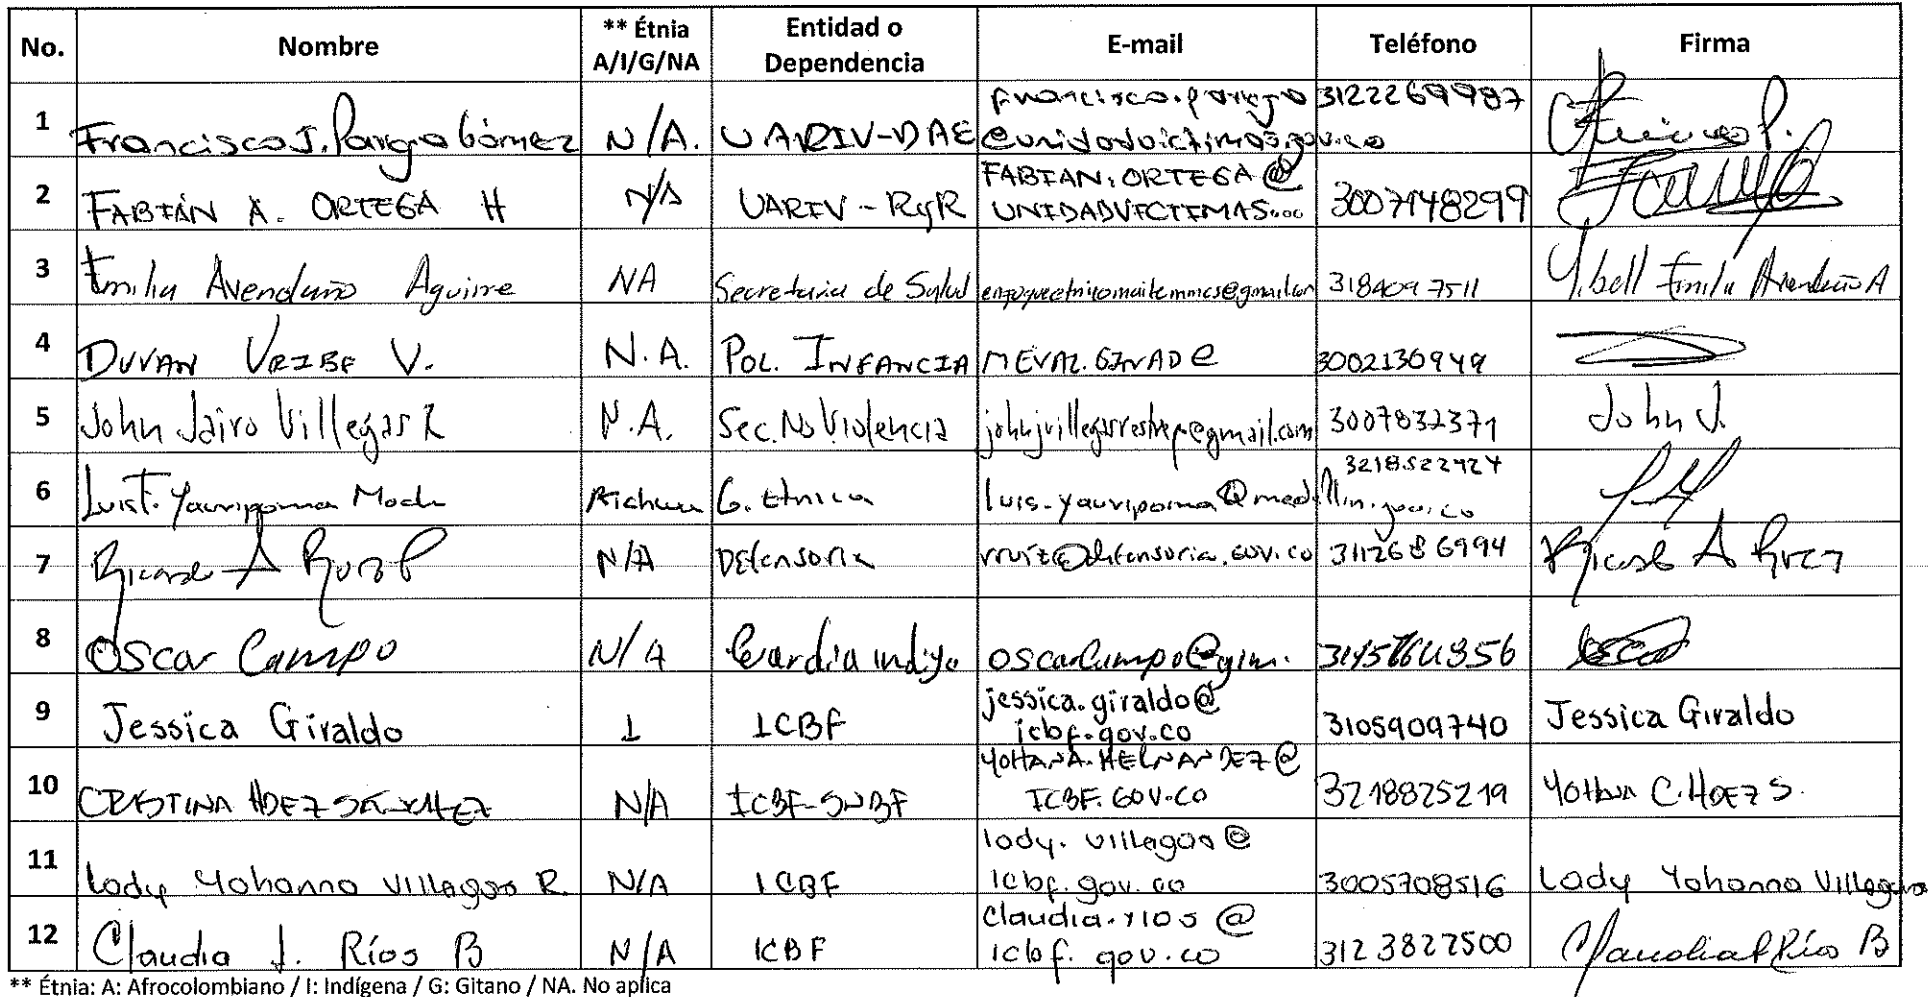 No. Nombre ** Étnia A/I/G/NA Entidad o Dependencia E-mail Teléfono Firma
1 Francisco J. Gómez N/A. UARIV-DAE 3122269987
2 FABIÁN A. ORTEGA H N/A UARIV - RyR FABIAN.ORTEGA@ UNIDADVICTIMAS... 3007148299
3 Emilia Avendaño Aguirre NA Secretaria de Salud 3184097511 Ybell Emilia Avendaño A
4 DUVAN URIBE V. N.A. POL. INFANCIA MEVAL.GINAD@ 3002130949
5 John Jairo Villegas R N.A. Sec. No Violencia johnjvillegasrestrep@gmail.com 3007832371 John J.
6 Luis F. Yauripoma G. Etnica luis.yauripoma@medellin.gov.co 3218522424
7 Ricardo A Ruiz N/A Defensoria rruiz@defensoria.gov.co 3112686994 Ricardo A Ruiz
8 Oscar Campo N/A
9 Jessica Giraldo I ICBF jessica.giraldo@ icbf.gov.co 3105909740 Jessica Giraldo
10 CRISTINA HDEZ SÁNCHEZ N/A ICBF-SNBF YOHANA.HERNANDEZ@ ICBF.GOV.CO 3218825219 Yohana C. HDEZ S.
11 Lady Yohanna Villegas R. N/A ICBF lady.villegas@ icbf.gov.co 3005708516 Lady Yohanna Villegas
12 Claudia J. Ríos B N/A ICBF claudia.rios@ icbf.gov.co 3123822500 Claudia J Ríos B
** Étnia: A: Afrocolombiano / I: Indígena / G: Gitano / NA. No aplica